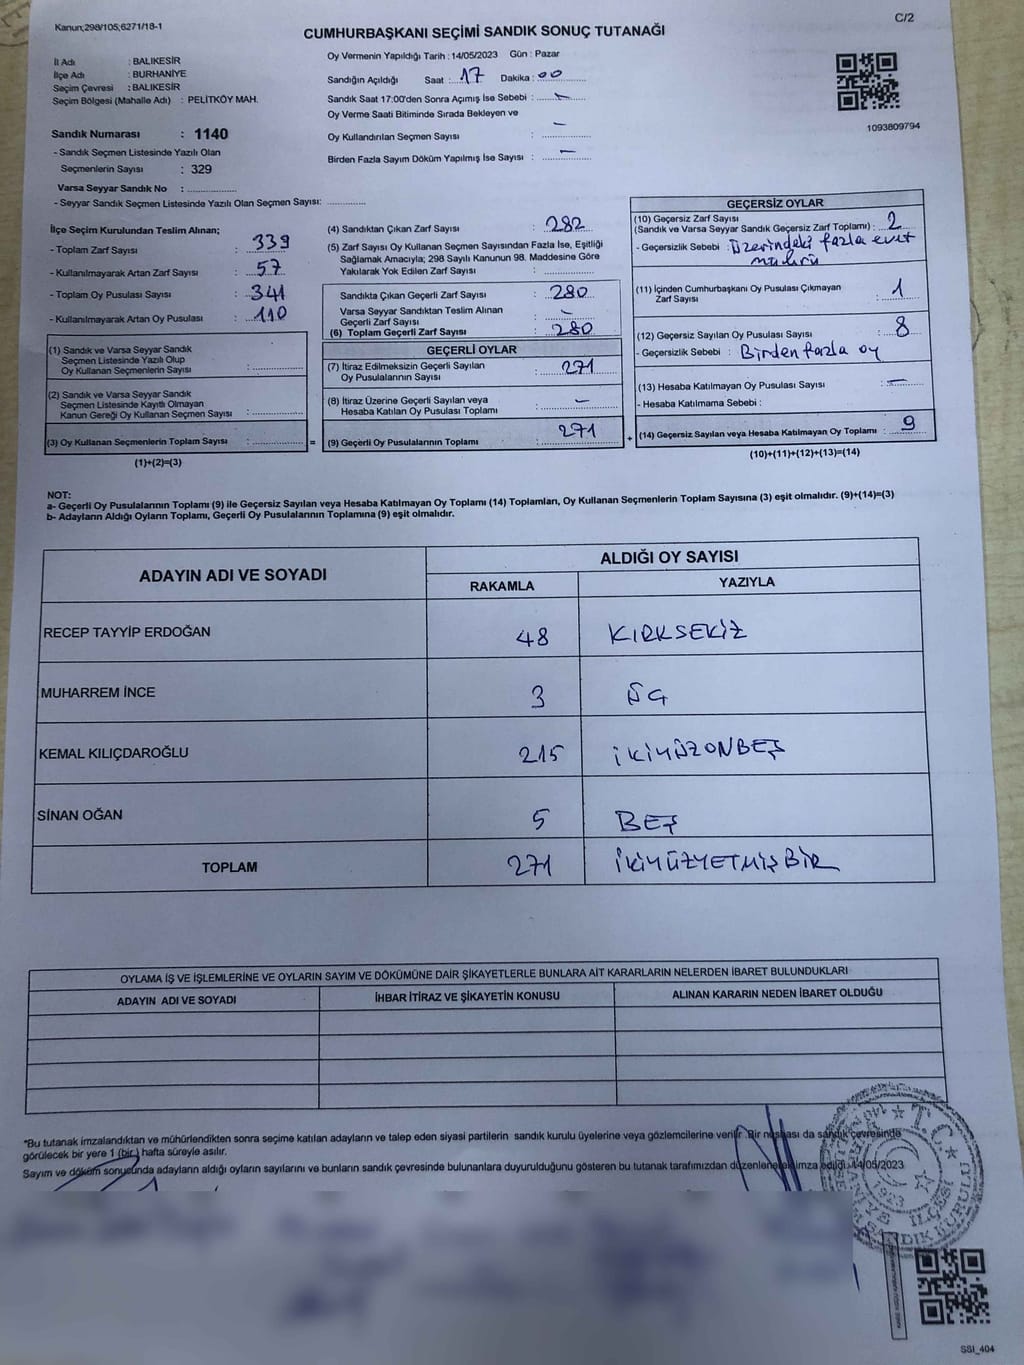 Kanun;298/105;6271/18-1
C/2
CUMHURBAŞKANI SEÇİMİ SANDIK SONUÇ TUTANAĞI
İl Adı : BALIKESİR
İlçe Adı : BURHANİYE
Seçim Çevresi : BALIKESİR
Seçim Bölgesi (Mahalle Adı) : PELİTKÖY MAH.
Sandık Numarası : 1140
- Sandık Seçmen Listesinde Yazılı Olan
Seçmenlerin Sayısı : 329
Varsa Seyyar Sandık No : ..............
- Seyyar Sandık Seçmen Listesinde Yazılı Olan Seçmen Sayısı: ............
Oy Vermenin Yapıldığı Tarih : 14/05/2023 Gün : Pazar
Sandığın Açıldığı Saat : 17 Dakika : 00
Sandık Saat 17:00'den Sonra Açımış İse Sebebi : –
Oy Verme Saati Bitiminde Sırada Bekleyen ve
Oy Kullandırılan Seçmen Sayısı : –
Birden Fazla Sayım Döküm Yapılmış İse Sayısı : –
1093809794
İlçe Seçim Kurulundan Teslim Alınan;
- Toplam Zarf Sayısı : 339
- Kullanılmayarak Artan Zarf Sayısı : 57
- Toplam Oy Pusulası Sayısı : 341
- Kullanılmayarak Artan Oy Pusulası : 110
(1) Sandık ve Varsa Seyyar Sandık
Seçmen Listesinde Yazılı Olup
Oy Kullanan Seçmenlerin Sayısı : ............
(2) Sandık ve Varsa Seyyar Sandık
Seçmen Listesinde Kayıtlı Olmayan
Kanun Gereği Oy Kullanan Seçmen Sayısı : ............
(3) Oy Kullanan Seçmenlerin Toplam Sayısı : ............
(1)+(2)=(3)
(4) Sandıktan Çıkan Zarf Sayısı : 282
(5) Zarf Sayısı Oy Kullanan Seçmen Sayısından Fazla İse, Eşitliği
Sağlamak Amacıyla; 298 Sayılı Kanunun 98. Maddesine Göre
Yakılarak Yok Edilen Zarf Sayısı : ............
Sandıkta Çıkan Geçerli Zarf Sayısı : 280
Varsa Seyyar Sandıktan Teslim Alınan
Geçerli Zarf Sayısı : –
(6) Toplam Geçerli Zarf Sayısı : 280
GEÇERLİ OYLAR
(7) İtiraz Edilmeksizin Geçerli Sayılan
Oy Pusulalarının Sayısı : 271
(8) İtiraz Üzerine Geçerli Sayılan veya
Hesaba Katılan Oy Pusulası Toplamı : –
= (9) Geçerli Oy Pusulalarının Toplamı : 271
GEÇERSİZ OYLAR
(10) Geçersiz Zarf Sayısı
(Sandık ve Varsa Seyyar Sandık Geçersiz Zarf Toplamı) : 2
- Geçersizlik Sebebi : Üzerindeki fazla evet
mührü
(11) İçinden Cumhurbaşkanı Oy Pusulası Çıkmayan
Zarf Sayısı : 1
(12) Geçersiz Sayılan Oy Pusulası Sayısı : 8
- Geçersizlik Sebebi : Birden fazla oy
(13) Hesaba Katılmayan Oy Pusulası Sayısı : –
- Hesaba Katılmama Sebebi :
+ (14) Geçersiz Sayılan veya Hesaba Katılmayan Oy Toplamı : 9
(10)+(11)+(12)+(13)=(14)
NOT:
a- Geçerli Oy Pusulalarının Toplamı (9) ile Geçersiz Sayılan veya Hesaba Katılmayan Oy Toplamı (14) Toplamları, Oy Kullanan Seçmenlerin Toplam Sayısına (3) eşit olmalıdır. (9)+(14)=(3)
b- Adayların Aldığı Oyların Toplamı, Geçerli Oy Pusulalarının Toplamına (9) eşit olmalıdır.
ADAYIN ADI VE SOYADI ALDIĞI OY SAYISI
RAKAMLA YAZIYLA
RECEP TAYYİP ERDOĞAN 48 KIRKSEKİZ
MUHARREM İNCE 3 ÜÇ
KEMAL KILIÇDAROĞLU 215 İKİYÜZONBEŞ
SİNAN OĞAN 5 BEŞ
TOPLAM 271 İKİYÜZYETMİŞBİR
OYLAMA İŞ VE İŞLEMLERİNE VE OYLARIN SAYIM VE DÖKÜMÜNE DAİR ŞİKAYETLERLE BUNLARA AİT KARARLARIN NELERDEN İBARET BULUNDUKLARI
ADAYIN ADI VE SOYADI İHBAR İTİRAZ VE ŞİKAYETİN KONUSU ALINAN KARARIN NEDEN İBARET OLDUĞU
*Bu tutanak imzalandıktan ve mühürlendikten sonra seçime katılan adayların ve talep eden siyasi partilerin sandık kurulu üyelerine veya gözlemcilerine verilir. Bir nüshası da sandık çevresinde
görülecek bir yere 1 (bir) hafta süreyle asılır.
Sayım ve döküm sonucunda adayların aldığı oyların sayılarını ve bunların sandık çevresinde bulunanlara duyurulduğunu gösteren bu tutanak tarafımızdan düzenlenerek imza edildi. 14/05/2023
T.C.
1923
İLÇESİ
SANDIK KURULU
SSI_404